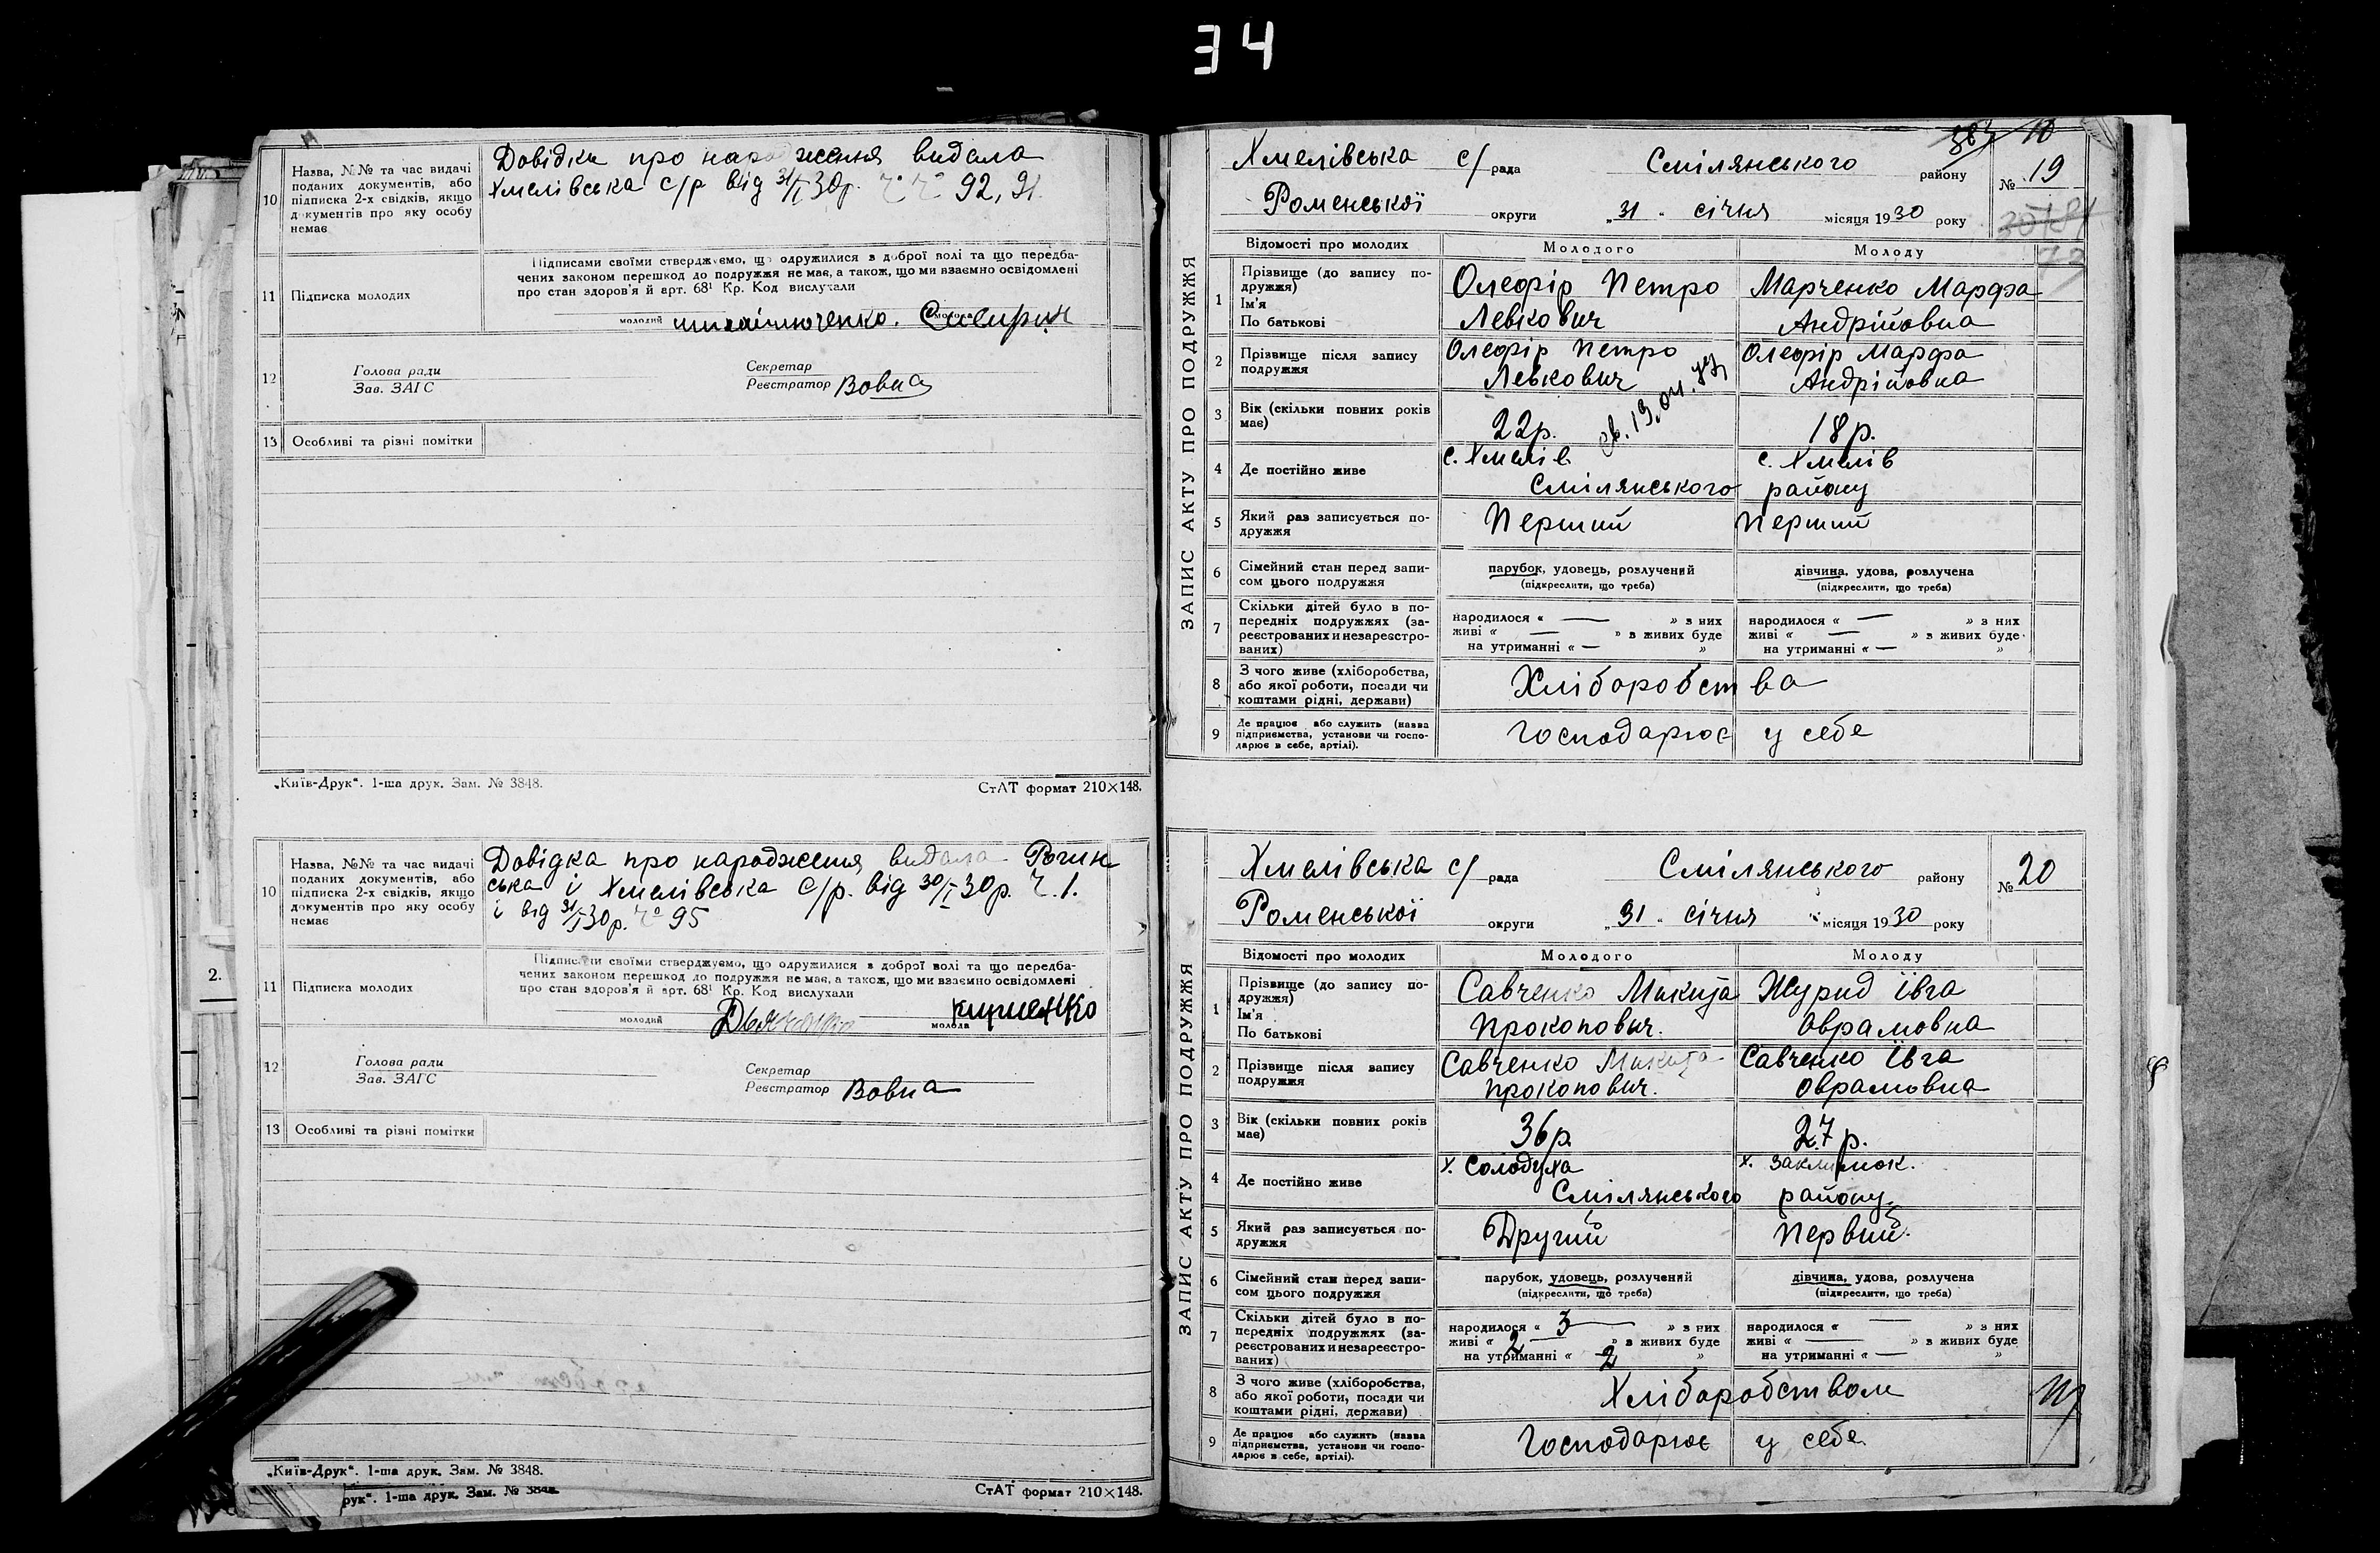 34
10
Назва, №№ та час видачі
поданих документів, або
підписка 2-х свідків, якщо
документів про яку особу
немає
Довідки про народження видала
Хмелівська с/р від 31/I 30р. Ч Ч 92, 91.
11
Підписка молодих
Підписами своїми стверджуємо, що одружилися з доброї волі та що передба-
чених законом перешкод до подружжя не має, а також, що ми взаємно освідомлені
про стан здоров'я й арт. 68¹ Кр. Код вислухали
молодий
молода
12
Голова ради
Зав. ЗАГС
Секретар
Реєстратор Вовна
13
Особливі та різні помітки
„Київ-Друк“. 1-ша друк. Зам. № 3848.
СтАТ формат 210×148.
10
Назва, №№ та час видачі
поданих документів, або
підписка 2-х свідків, якщо
документів про яку особу
немає
Довідка про народження видала Рогин
ська і Хмелівська с/р. від 30/I 30р. Ч. 1.
і від 31/I 30р. Ч 95
11
Підписка молодих
Підписами своїми стверджуємо, що одружилися з доброї волі та що передба-
чених законом перешкод до подружжя не має, а також, що ми взаємно освідомлені
про стан здоров'я й арт. 68¹ Кр. Код вислухали
молодий
молода
12
Голова ради
Зав. ЗАГС
Секретар
Реєстратор Вовна
13
Особливі та різні помітки
2.
„Київ-Друк“. 1-ша друк. Зам. № 3848.
СтАТ формат 210×148.
рук“. 1-ша друк. Зам. № 3848.
10
Хмелівська с/рада Смілянського району № 19
Роменської округи „31“ січня місяця 1930 року
ЗАПИС АКТУ ПРО ПОДРУЖЖЯ
Відомості про молодих
Молодого
Молоду
1
Прізвище (до запису по-
дружжя)
Ім'я
По батькові
Олефір Петро
Левкович
Марченко Марфа
Андрійовна
2
Прізвище після запису
подружжя
Олефір Петро
Левкович
Олефір Марфа
Андрійовна
3
Вік (скільки повних років
має)
22р.
18р.
4
Де постійно живе
с. Хмелів
с. Хмелів
Смілянського району
5
Який раз записується по-
дружжя
Перший
Перший
6
Сімейний стан перед запи-
сом цього подружжя
парубок, удовець, розлучений
(підкреслити, що треба)
дівчина, удова, розлучена
(підкреслити, що треба)
7
Скільки дітей було в по-
передніх подружжях (за-
реєстрованих и незареєстро-
ваних)
народилося « — » з них
живі « — » в живих буде
на утриманні « — »
народилося « — » з них
живі « — » в живих буде
на утриманні « — »
8
З чого живе (хліборобства,
або якої роботи, посади чи
коштами рідні, держави)
Хліборобства
9
Де працює або служить (назва
підприємства, установи чи госпо-
дарює в себе, артілі).
Господарює у себе
Хмелівська с/рада Смілянського району № 20
Роменської округи „31“ січня місяця 1930 року
ЗАПИС АКТУ ПРО ПОДРУЖЖЯ
Відомості про молодих
Молодого
Молоду
1
Прізвище (до запису по-
дружжя)
Ім'я
По батькові
Савченко Микита
Прокопович.
Журид Ївга
Оврамовна
2
Прізвище після запису
подружжя
Савченко Микита
Прокопович.
Савченко Ївга
Оврамовна
3
Вік (скільки повних років
має)
36р.
27р.
4
Де постійно живе
х. Солодуха
х. Заклимок.
Смілянського району.
5
Який раз записується по-
дружжя
Другий
Первий.
6
Сімейний стан перед запи-
сом цього подружжя
парубок, удовець, розлучений
(підкреслити, що треба)
дівчина, удова, розлучена
(підкреслити, що треба)
7
Скільки дітей було в по-
передніх подружжях (за-
реєстрованих и незареєстро-
ваних)
народилося « 3 — » з них
живі « 2 — » в живих буде
на утриманні « 2 »
народилося « — » з них
живі « — » в живих буде
на утриманні « — »
8
З чого живе (хліборобства,
або якої роботи, посади чи
коштами рідні, держави)
Хліборобством
9
Де працює або служить (назва
підприємства, установи чи госпо-
дарює в себе, артілі).
Господарює у себе